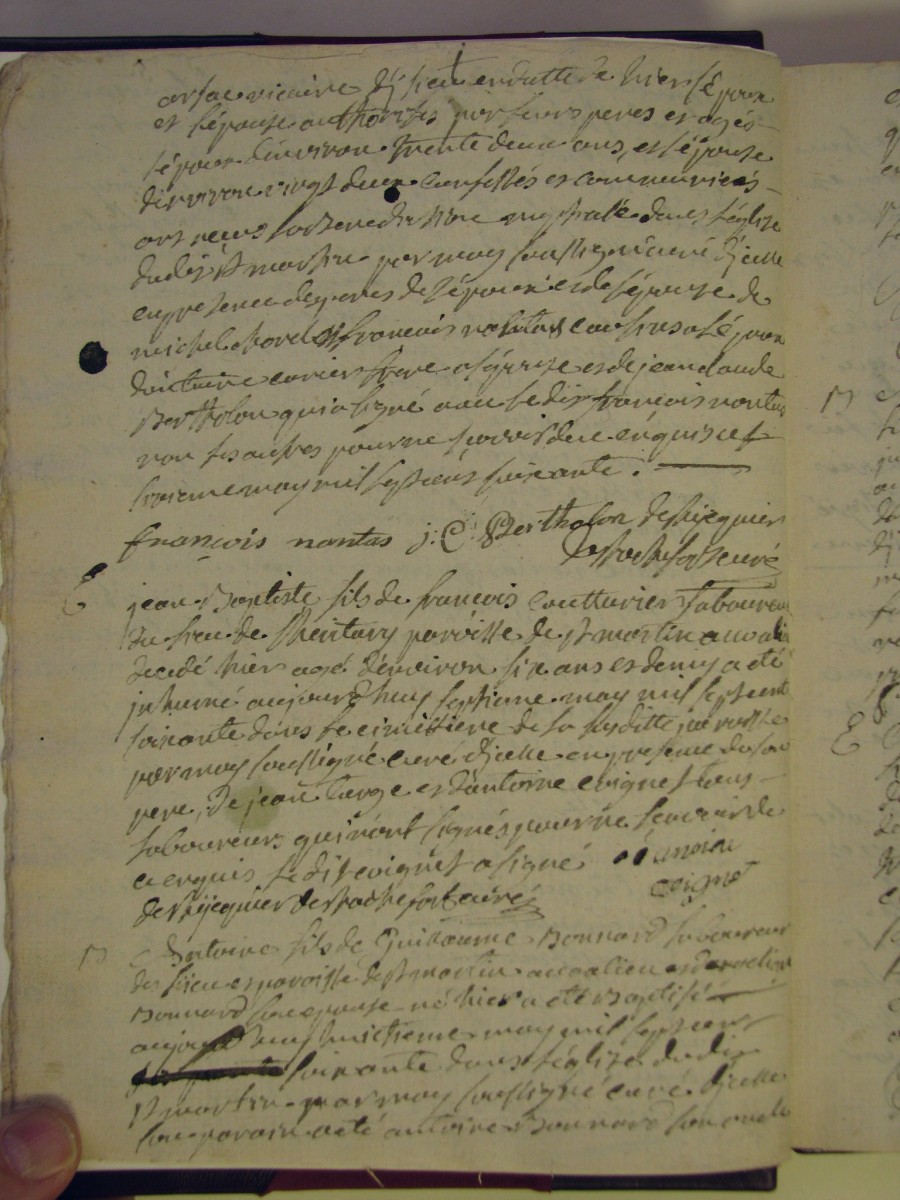 vicaire dudit lieu en datte de hier l'époux
et l'épouse authorisés par leurs peres et agés
l'époux d'environ trente deux ans, et l'épouse
d'environ vingt deux confessés et communiés
ont reçus la benediction nuptiale dans l'église
dudit st martin par moy soussigné curé d'icelle
en presence des peres de l'époux et de l'épouse de
michel et françois nantas l'époux
d'antoine frere a l'épouse et de jean claude
Bertholon qui a signé avec le dit françois nantas
non les autres pour ne sçavoir de ce enquis ce
may mil sept cent soixante .
françois nantas j: C: Bertholon
curé
E
jean Baptiste fils de françois Coutturier laboureur
du lieu de paroisse de st martin
decedé hier agé d'environ six ans et demy a été
inhumé aujourd'huy septieme may mil sept cent
soixante dans le cimittiere de la susditte paroisse
par moy soussigné curé d'icelle en presence de son
pere, de jean large et d'antoine coignet tous
laboureurs qui n'ont signés pour ne sçavoir de
ce enquis le dit coignet a signé antoine
coignet
curé
B
Antoine fils de Guillaume Bonnard laboureur
du lieu et paroisse de st martin
Bonnard son epouse né hier a été Baptisé
aujourd'huy huictieme may mil sept cent
soixante dans l'église du dit
st martin par moy soussigné curé d'icelle
son parain a été antoine Bonnard son oncle